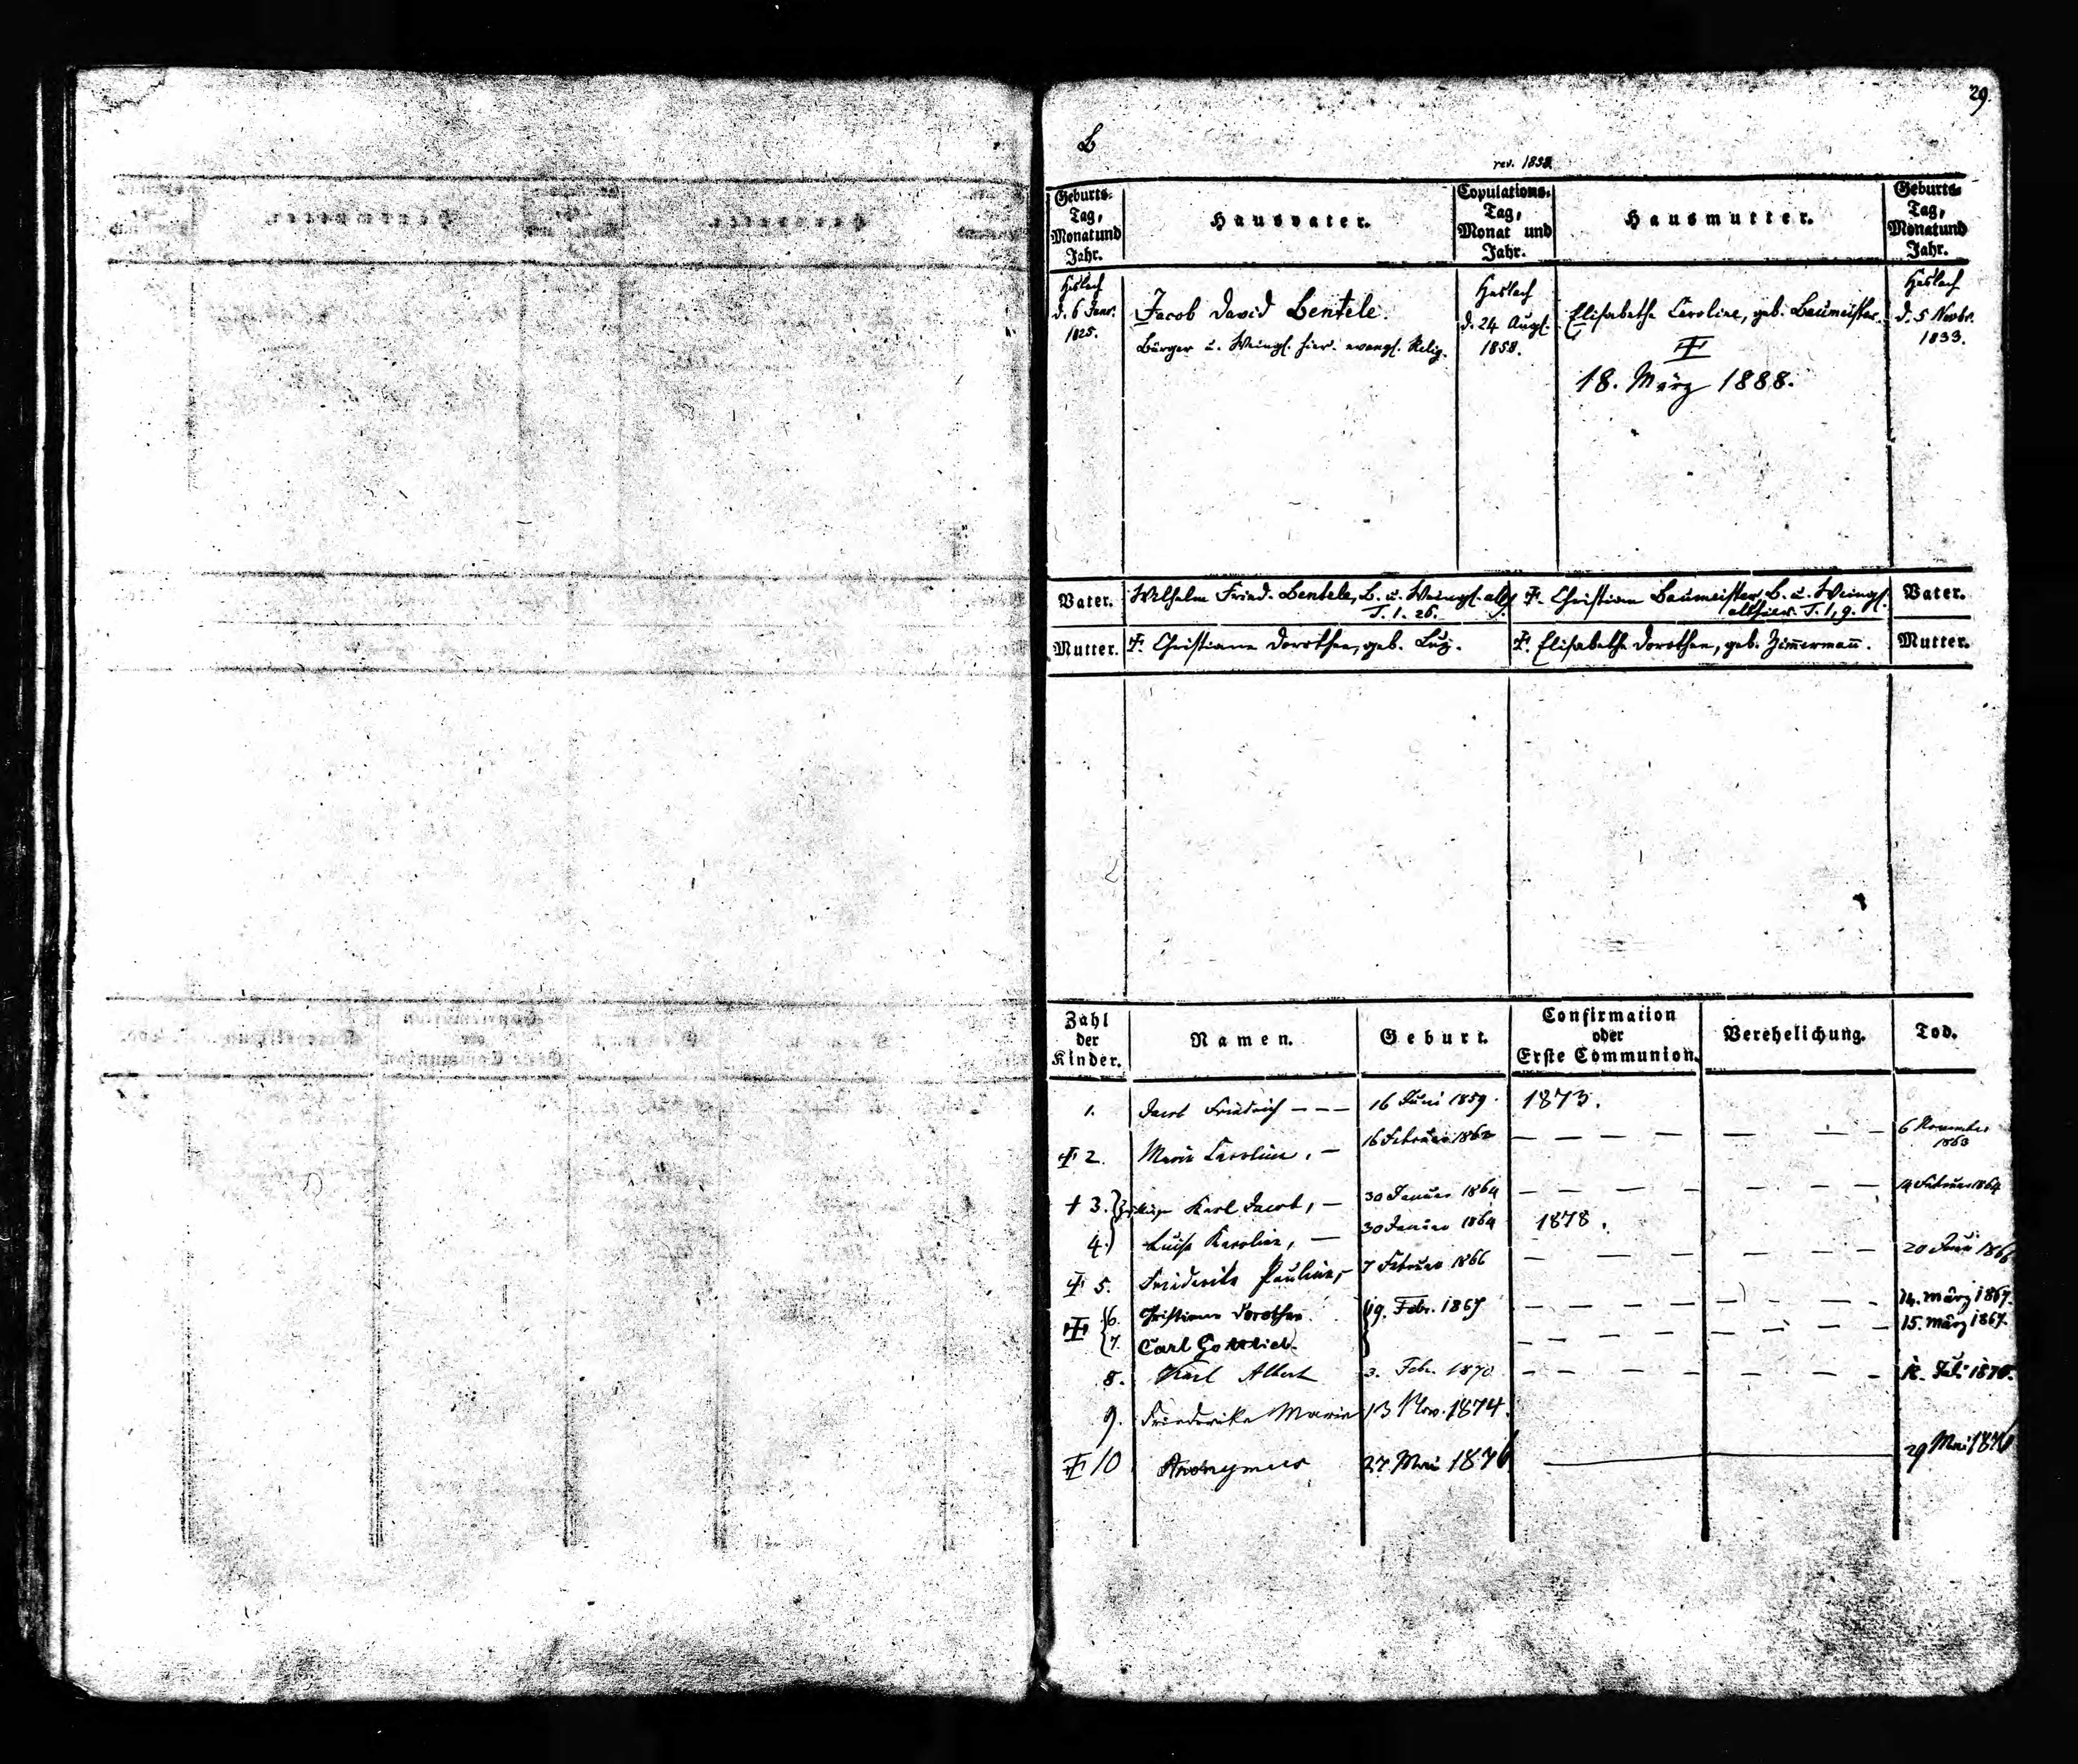 29.
B
rev. 1858.
Geburts- Tag, Monat und Jahr.
Hausvater.
Copulations- Tag, Monat und Jahr.
Hausmutter.
Geburts- Tag, Monat und Jahr.
Haslach d. 6 Janr. 1825.
Jacob David Bentele.
Bürger u. Weingr. hier. evangl. Relig.
Haslach d. 24 Augst. 1858.
Elisabethe Caroline, geb. Baumeister.
18. März 1888.
Haslach d. 5 Novbr. 1833.
Vater.
Wilhelm Fried. Bentele, B. u. Weingr. allh. T. 1. 26.
Christian Baumeister, B. u. Weingr. allhier. T. 1, 9.
Vater.
Mutter.
Christiane Dorothea, geb. Luz.
Elisabethe Dorothea, geb. Zim̄ermañ.
Mutter.
Zahl der Kinder.
Namen.
Geburt.
Confirmation oder Erste Communion.
Verehelichung.
Tod.
1. Jacob Friedrich – – – 16 Juni 1859. 1873.
2. Marie Caroline, – 16 Februar 1862 6 November 1863
3. Karl Jacob, – 30 Januar 1864 Februar 1864
4. Luise Karoline, – 30 Januar 1864 1878.
5. Friderike Pauline, – 7 Februar 1866 20 1866
6. Christiane Dorothea. 19. Febr. 1867 14. März 1867.
7. Carl Gottlieb. 15. März 1867.
8. Karl Albert 3. Febr. 1870 Juli 1870.
9. Friederike Marie 13 Nov. 1874.
10 Anonymus 27. Mai 1876 29 Mai 1876